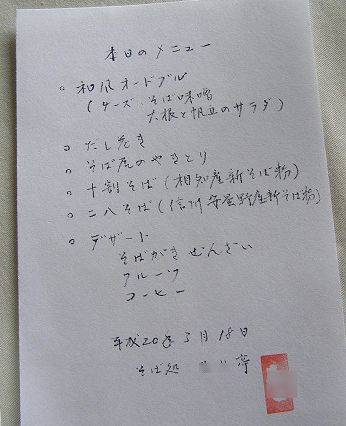 本日のメニュー
○ 和風オードブル
(チーズ、そば味噌
大根と帆立のサラダ)
○ だしまき
○ そば屋のやきとり
○ 十割そば(相知産新そば粉)
○ 二八そば(信州安曇野産新そば粉)
○ デザート
そばがきぜんざい
フルーツ
コーヒー
平成20年3月18日
そば処 亭